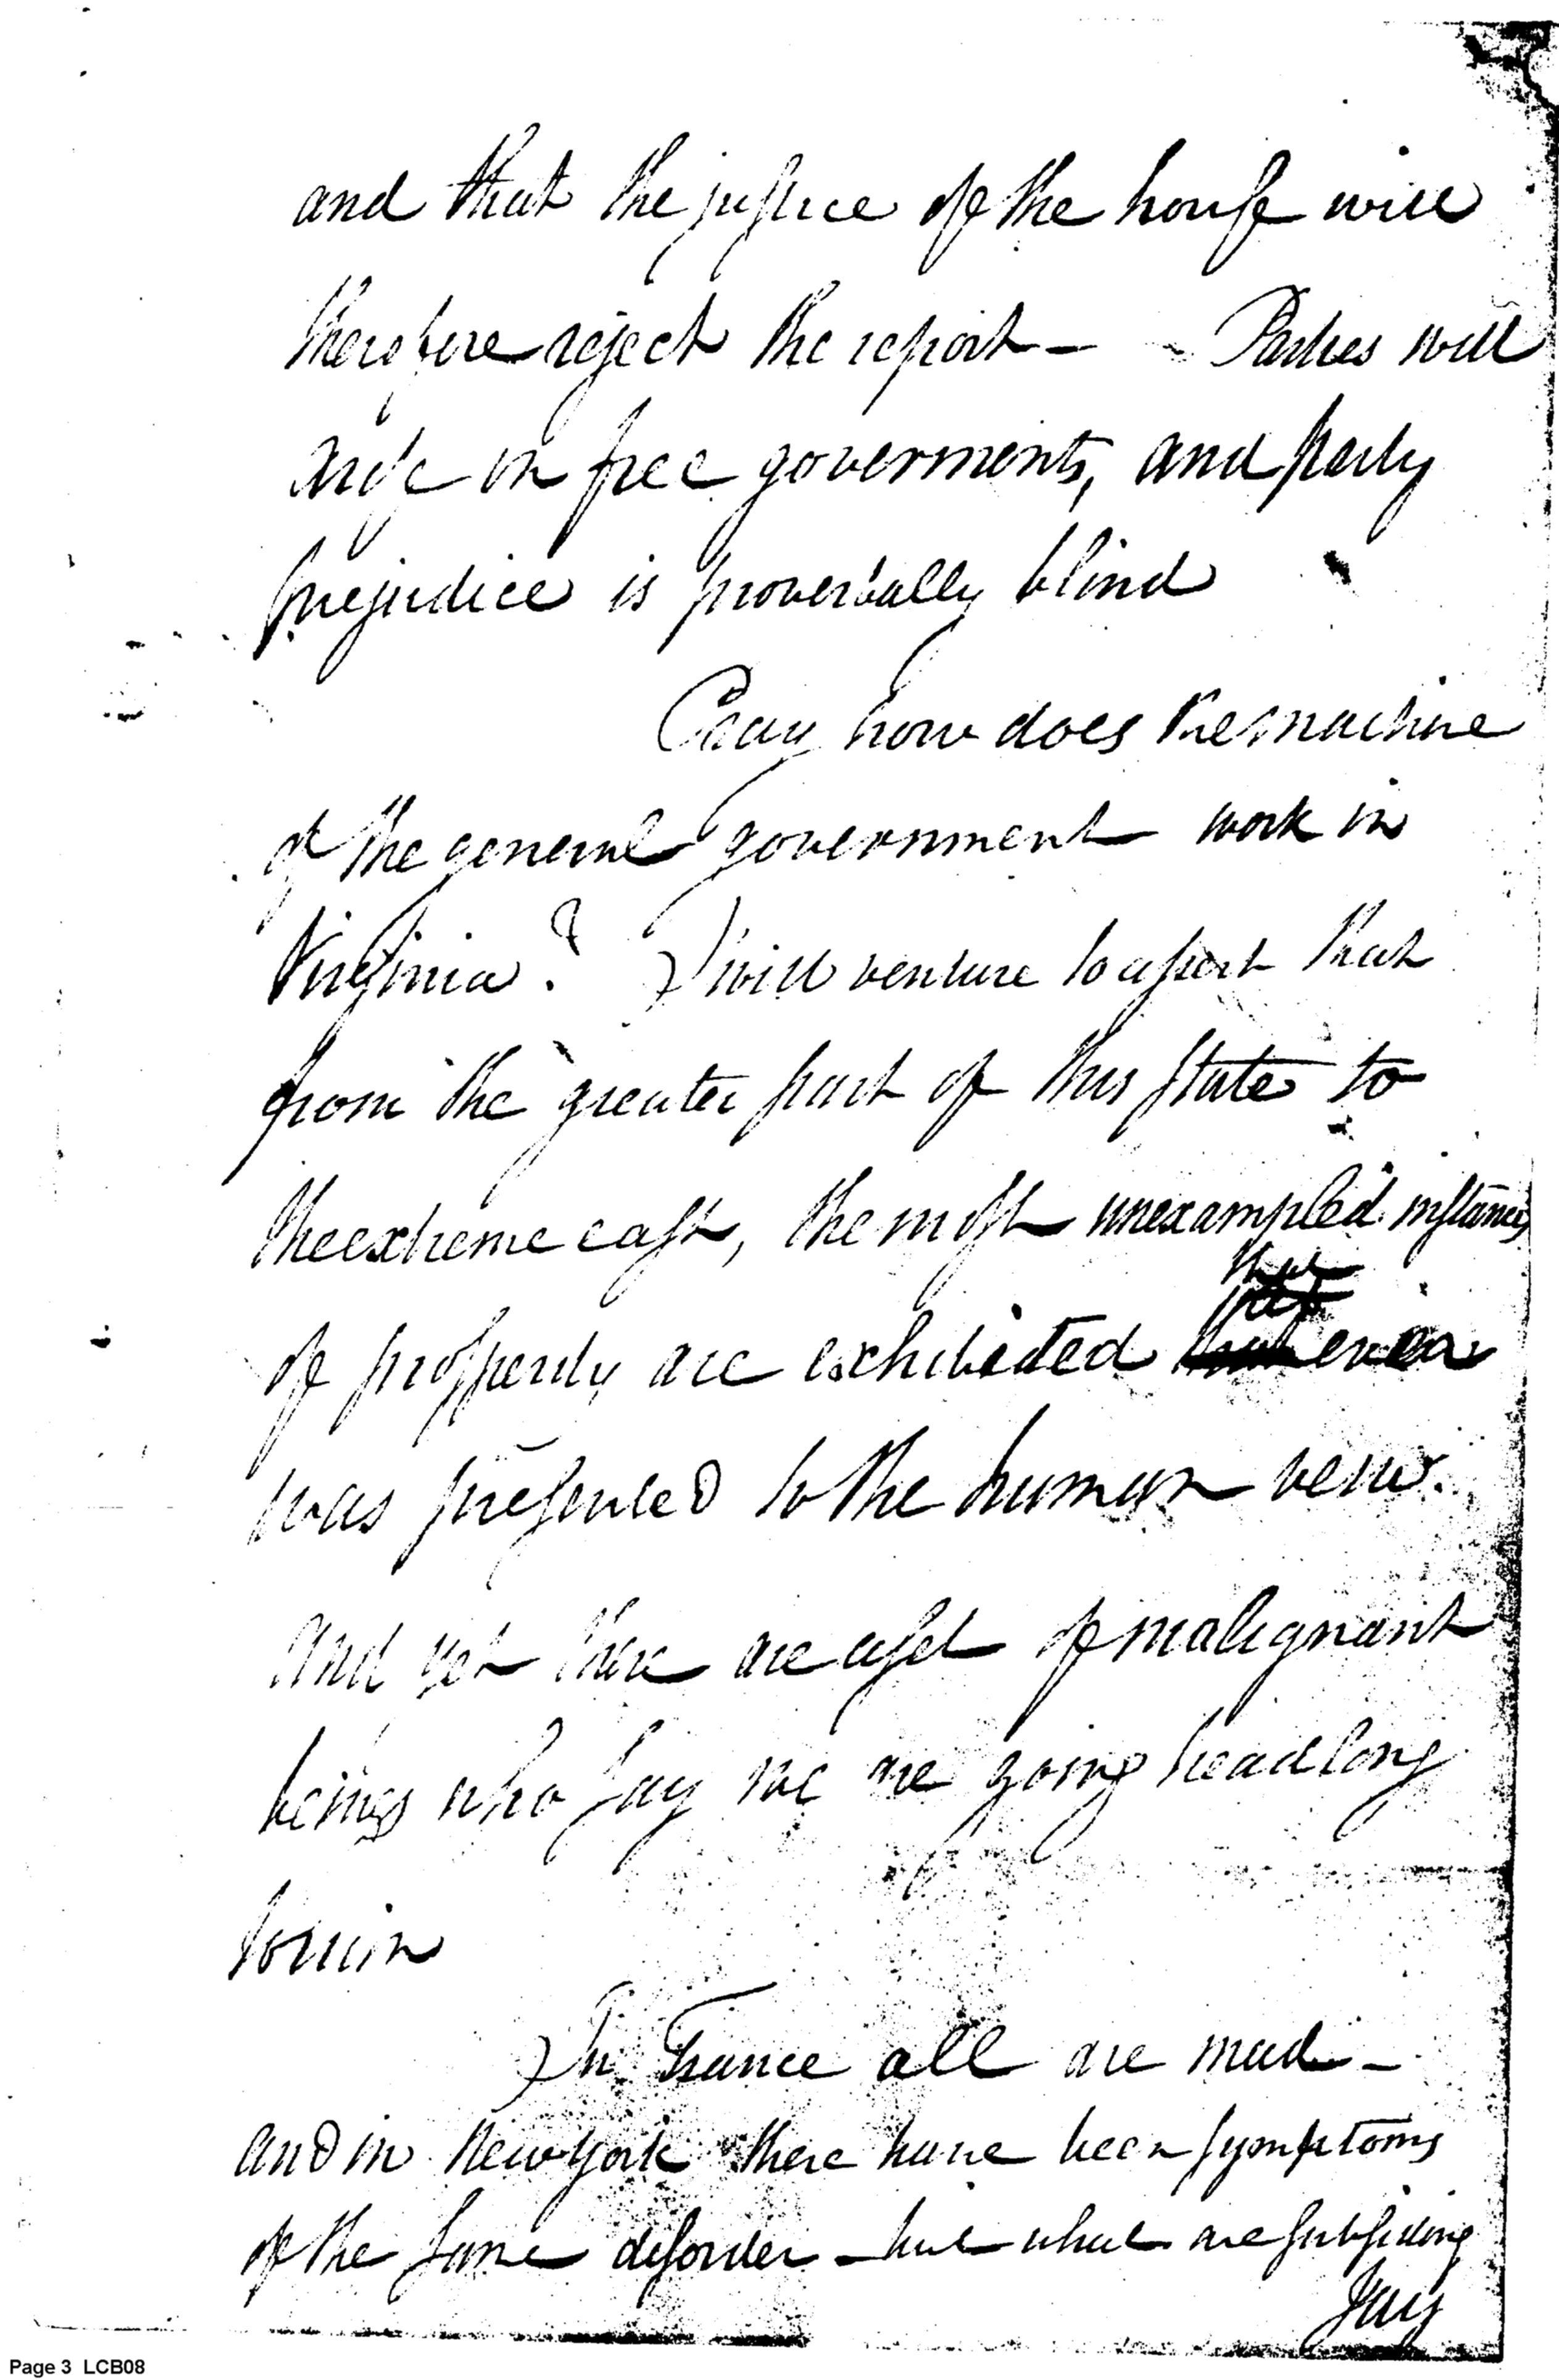 and that the justice of the house will
therefore reject the report — Parties will
arise in free goverments, and party
prejudice is proverbially blind
Pray how does the machine
of the general government work in
Virginia? I will venture to assert that
from the greater part of this state to
the extreme east, the most unexampled instances
of prosperity are exhibited that ever
was presented to the human veiw.
And yet there are a set of malignant
beings who say we are going headlong
to ruin
In France all are mad —
and in New York there have been symptoms
of the same disorder — but what are subsiding
Jay
Page 3 LCB08